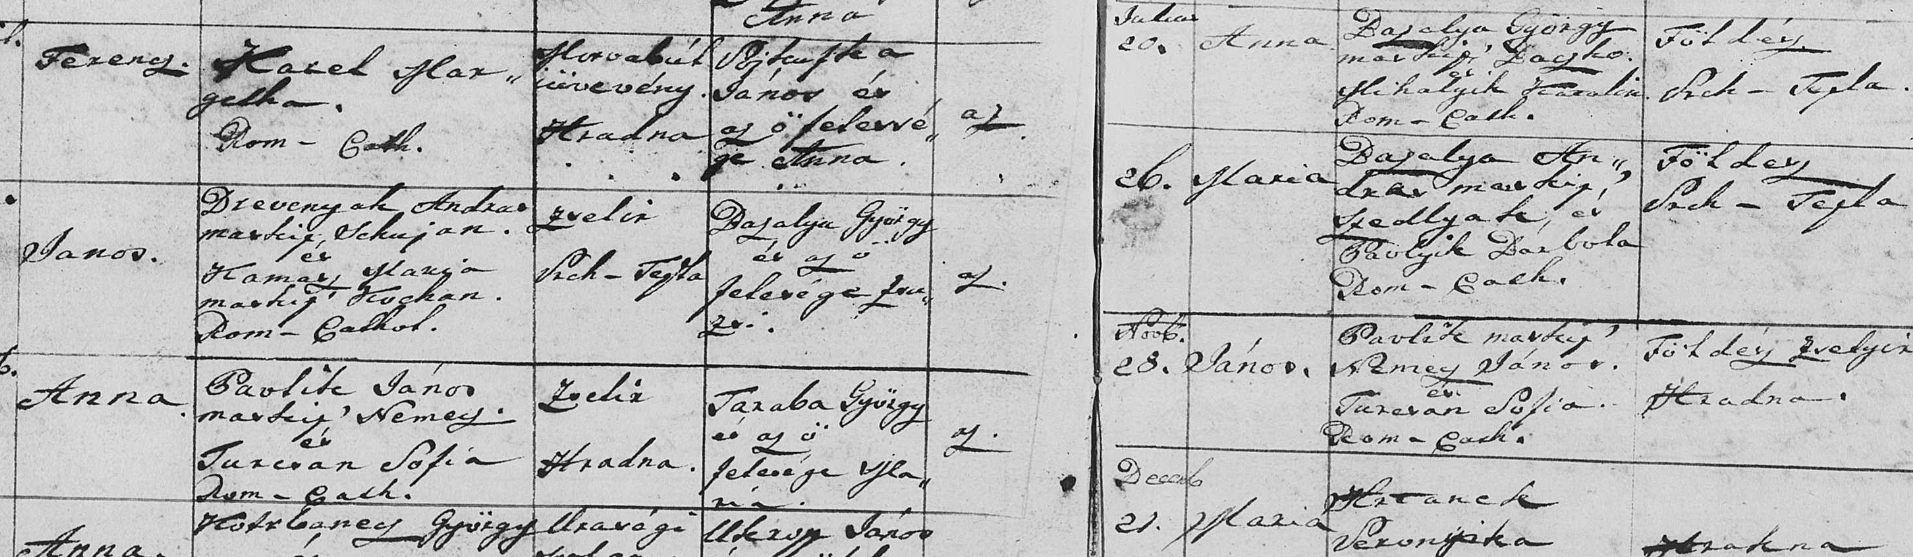 Anna
Ferencz.
Karel Mar„
getha.
Rom – Cath.
özvevény.
Hradna
János és
az ő felessé„
ge Anna.
az.
Janos.
Drevenyak Andras
maskép Schujan.
és
Kamasz Maria
maskép Kochan.
Rom – Cathol.
Zselir
Prch – Tepla
Bazalya György
és az ő
felesége Zsu„
zsi.
az.
Anna.
Pavlik János
maskép Nemecz.
és
Turcsan Sofia
Rom – Cath.
Zselir
Hradna.
Taraba György
és az ő
felesége Ma„
ria.
az.
Anna.
György
Urasági
János
Julius
20. Anna
Bazalya György
maskép Daczko.
és
Mihalyik Karolin
Rom – Cath.
Földész
Prch – Tepla.
26. Maria
Bazalya An„
dras maskép
Szedlyak, és
Pavlyik Barbola
Rom – Cath.
Földész
Prch – Tepla
Novb.
28. János.
Pavlik maskép
Nemecz János.
és
Turcsan Sofia.
Rom – Cath.
Földész Zselyir
Hradna.
Decemb
21. Maria
Hrtanek
Veronyika
Hradna